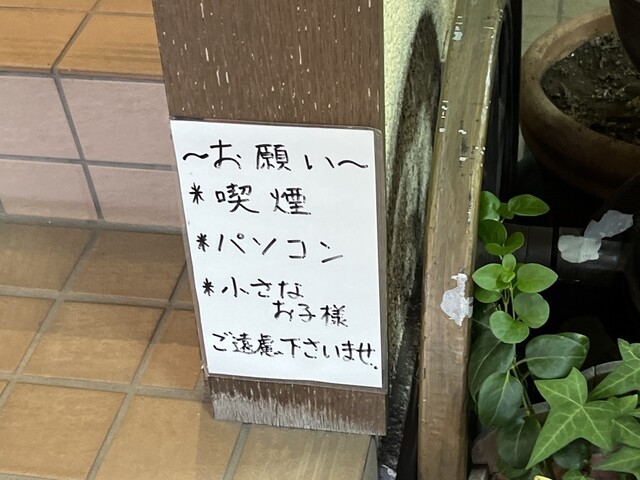 ～お願い～
*喫煙
*パソコン
*小さな
お子様
ご遠慮下さいませ。